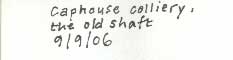 Caphouse colliery,
the old shaft
9/9/06